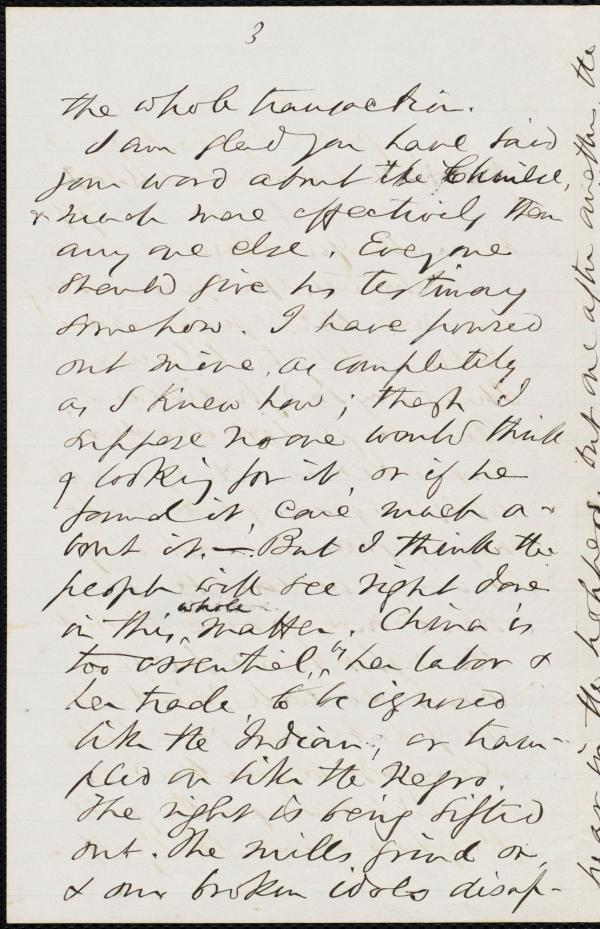 3
the whole transaction.
I am glad you have said
your word about the Chinese,
& much more effectively than
any one else. Everyone
should give his testimony
somehow. I have poured
out mine, as completely
as I knew how; though I
suppose no one would think
of looking for it, or if he
found it, care much a-
bout it. — But I think the
people will see right done
in this whole matter. China is
too essential, in her labor &
her trade, to be ignored
like the Indian, or tram-
pled on like the Negro.
The right is being sifted
out. The mills grind on,
& our broken idols disap-
pear in the hoppers, but one after another, the